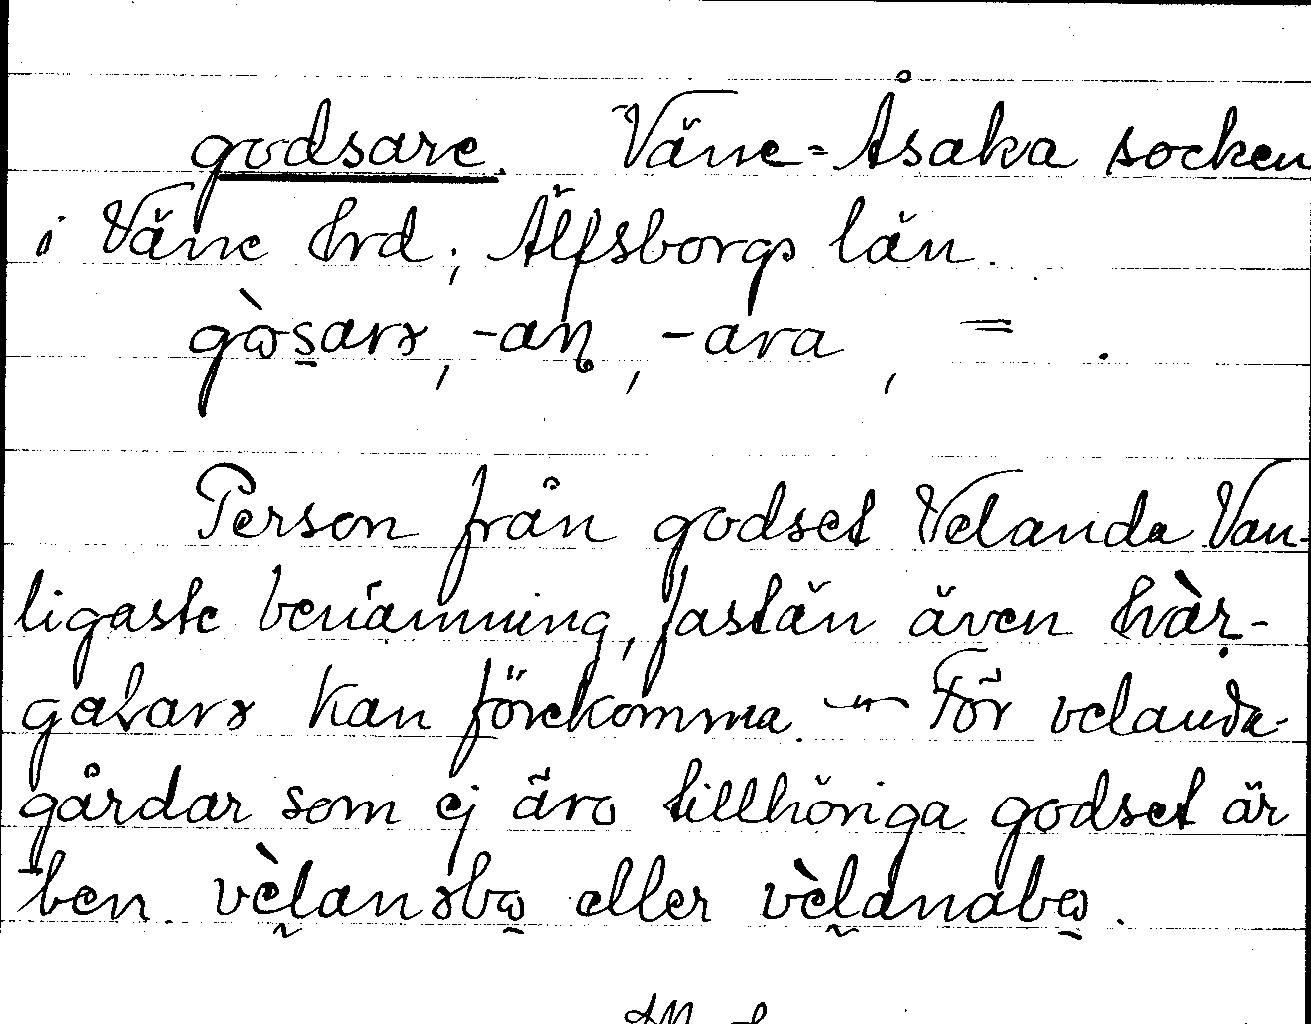 godsare. Väne-Åsaka socken
i Väne hrd; Älfsborgs län.
gɷ̀s̱arɤ, -aɳ, -ara, = .
Person från godset Velanda Van-
ligaste benämning, fastän även hàr-
galarɤ kan förekomma. — För velanda-
gårdar som ej äro tillhöriga godset är
ben. vèl̰anɤbɷ̱ eller vèl̰anabɷ̱.